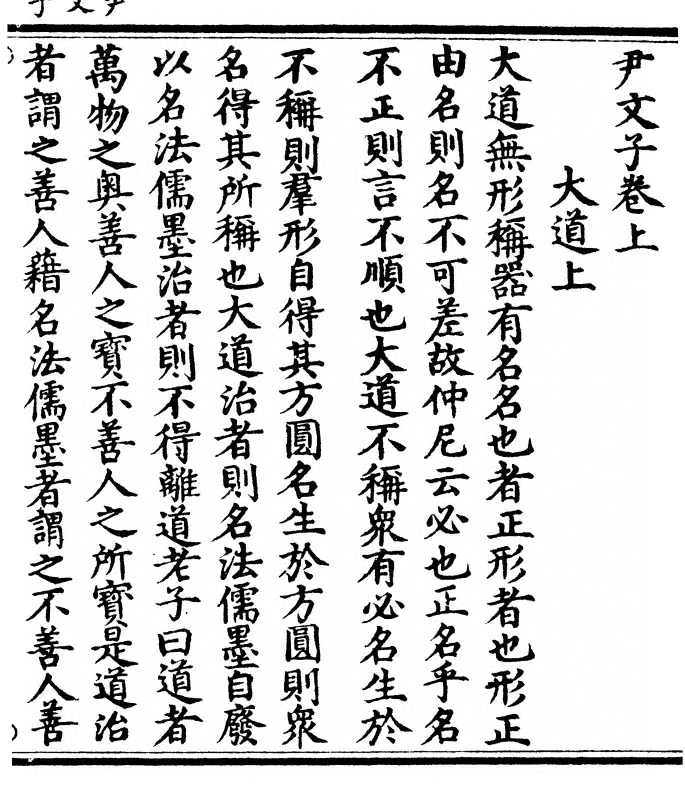 尹文子卷上
大道上
大道無形稱器有名名也者正形者也形正
由名則名不可差故仲尼云必也正名乎名
不正則言不順也大道不稱衆有必名生於
不稱則羣形自得其方圓名生於方圓則衆
名得其所稱也大道治者則名法儒墨自廢
以名法儒墨治者則不得離道老子曰道者
萬物之奥善人之寶不善人之所寶是道治
者謂之善人藉名法儒墨者謂之不善人善